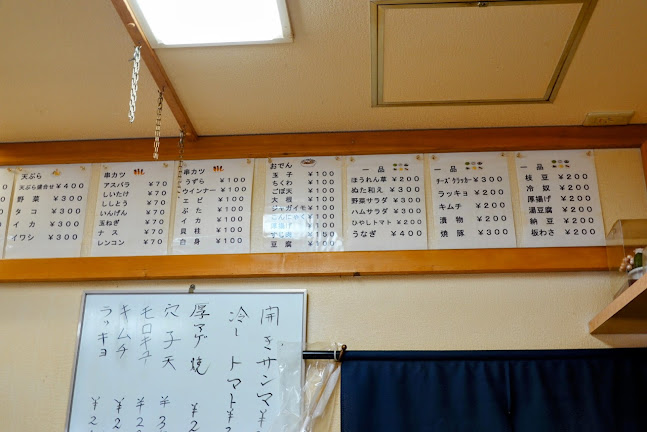 天ぷら
天ぷら盛合せ ¥400
野菜 ¥300
タコ ¥300
イカ ¥300
イワシ ¥300
串カツ
アスパラ ¥70
しいたけ ¥70
ししとう ¥70
いんげん ¥70
玉ねぎ ¥70
ナス ¥70
レンコン ¥70
串カツ
うずら ¥100
ウインナー ¥100
エビ ¥100
ぶた ¥100
イカ ¥100
貝柱 ¥100
白身 ¥100
おでん
玉子 ¥100
ちくわ ¥100
ごぼ天 ¥100
大根 ¥100
ジャガイモ ¥100
こんにゃく ¥100
厚揚げ ¥100
¥150
豆腐 ¥100
一品
ほうれん草 ¥200
ぬた和え ¥300
野菜サラダ ¥300
ハムサラダ ¥300
ひやしトマト ¥200
うなぎ ¥400
一品
チーズクラッカー ¥300
ラッキョ ¥200
キムチ ¥200
漬物 ¥200
焼豚 ¥300
一品
枝豆 ¥200
冷奴 ¥200
厚揚げ ¥200
湯豆腐 ¥200
納豆 ¥200
板わさ ¥200
開きサンマ ¥
冷しトマト ¥
厚アゲ焼 ¥2
穴子天 ¥3
モロキュ ¥2
キムチ ¥2
ラッキョ ¥2